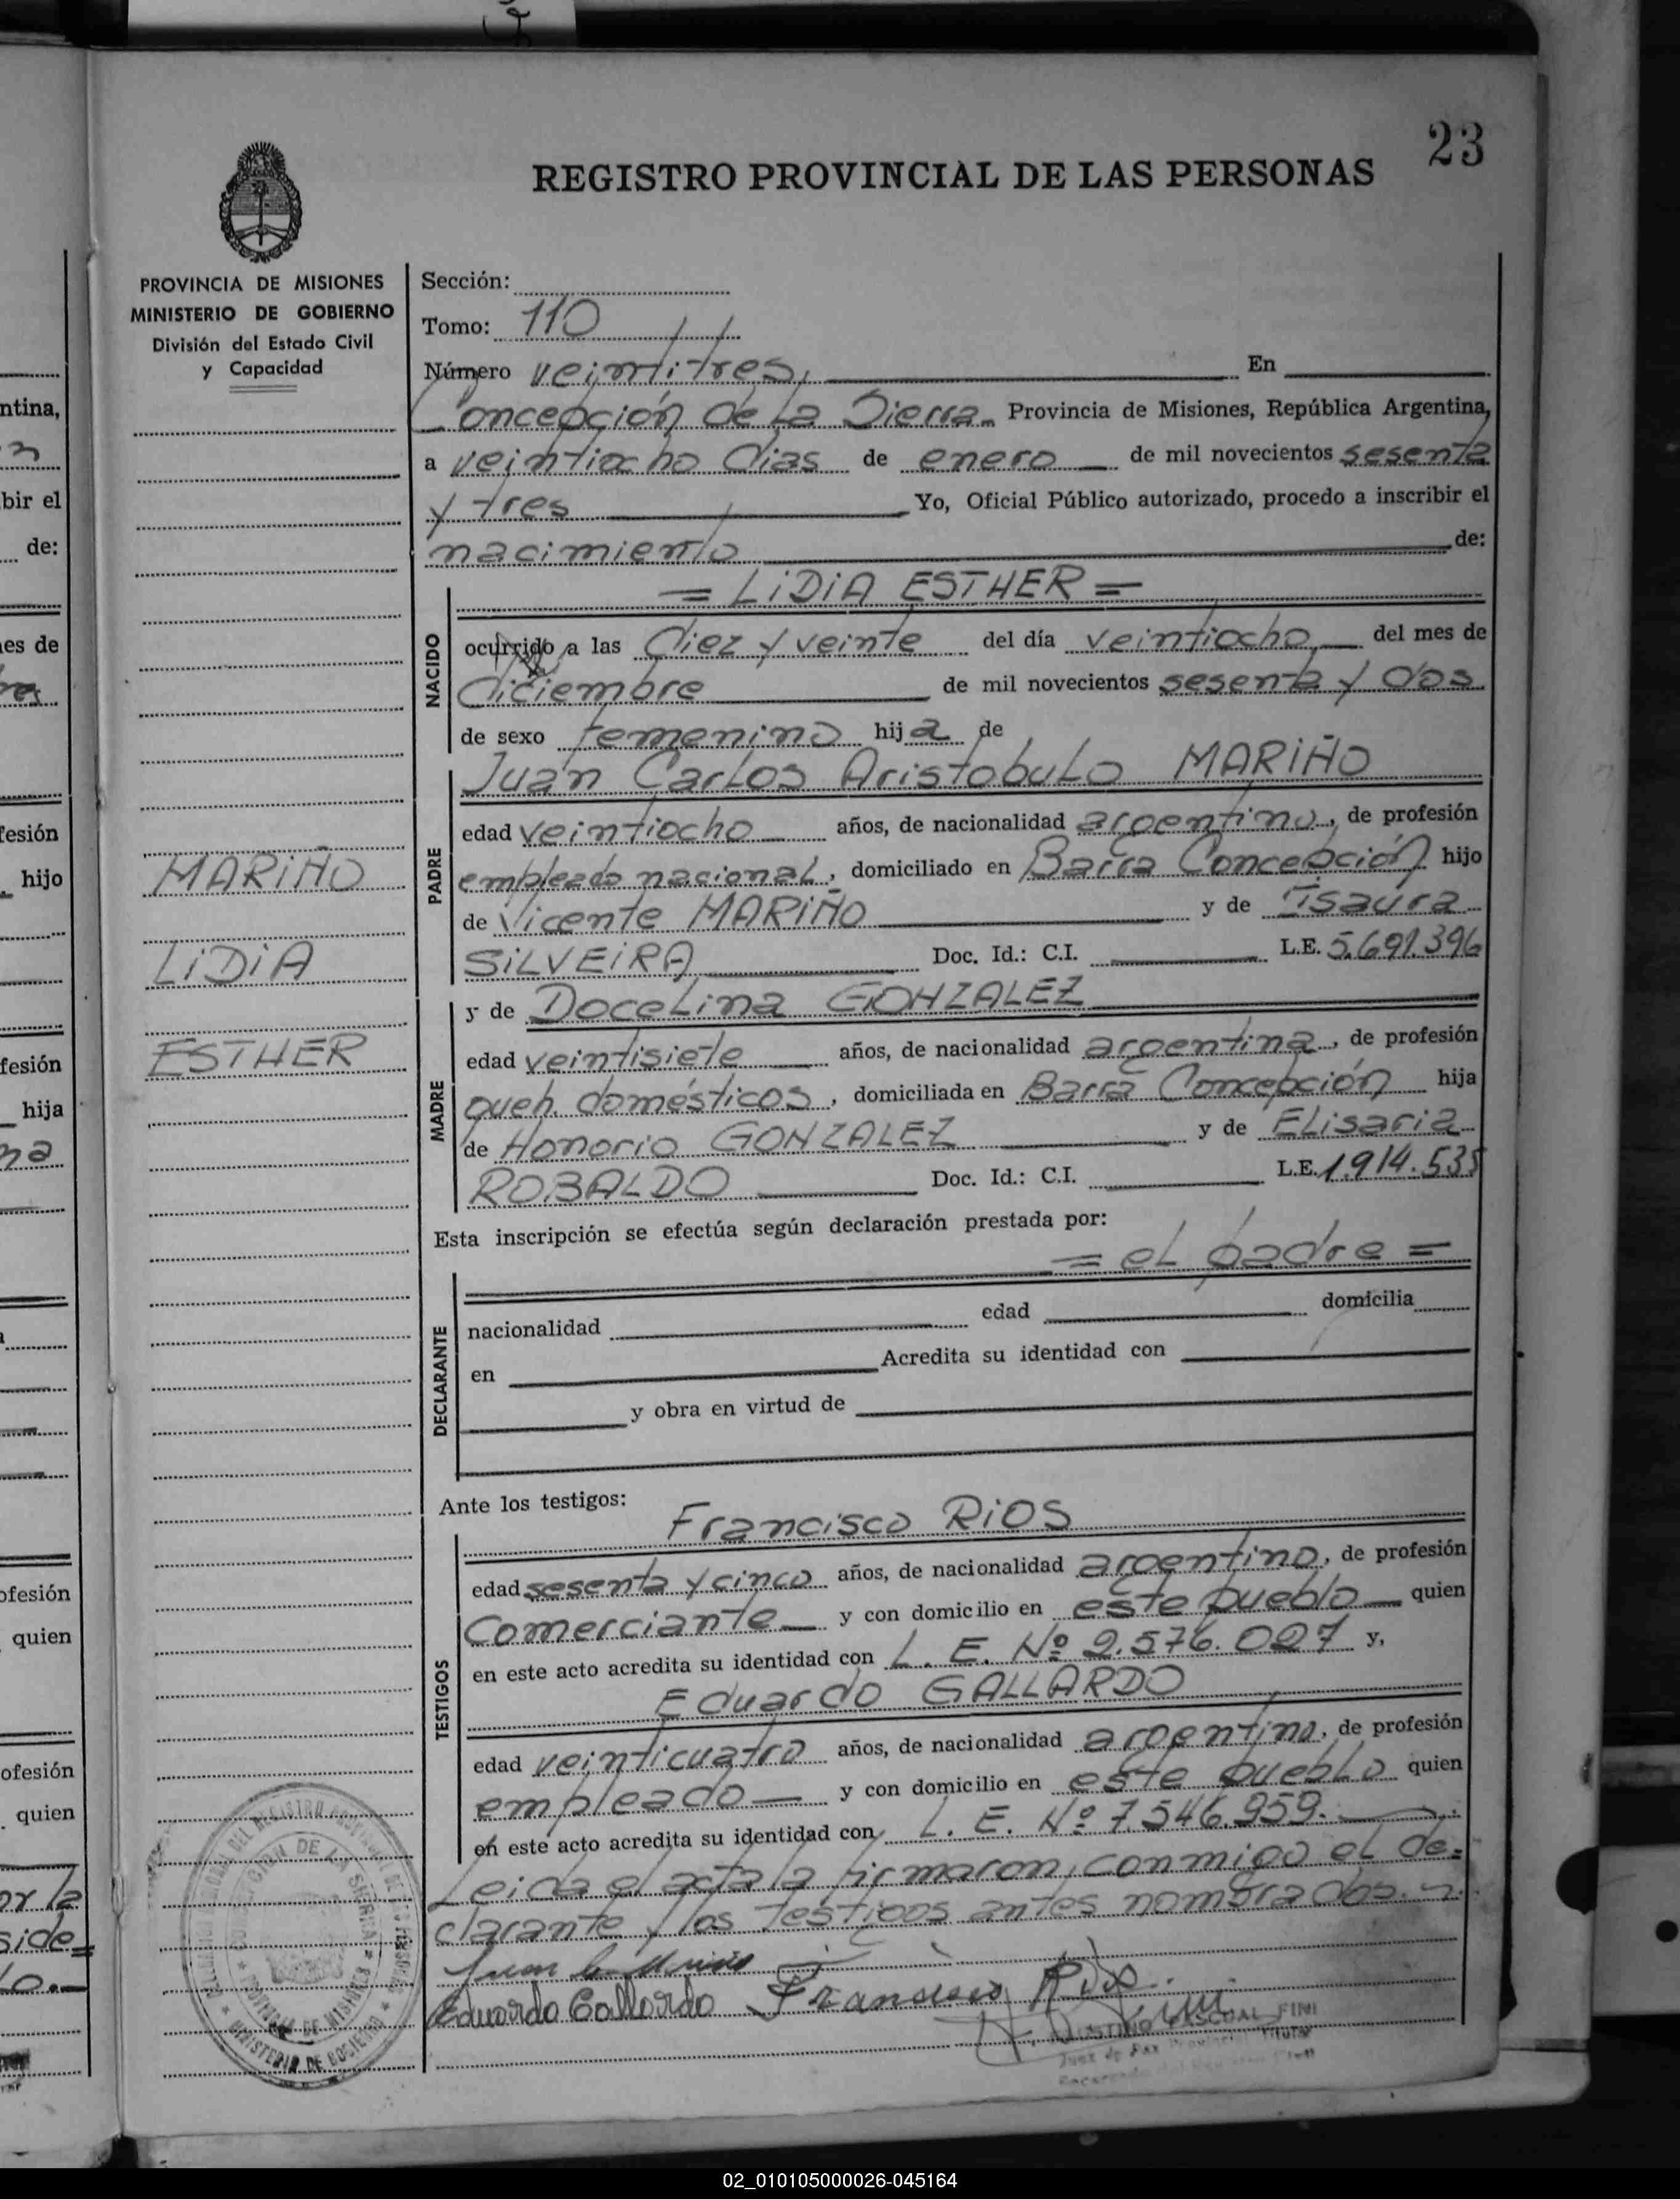 23
REGISTRO PROVINCIAL DE LAS PERSONAS
PROVINCIA DE MISIONES
MINISTERIO DE GOBIERNO
División del Estado Civil
y Capacidad
MARIÑO
LIDIA
ESTHER
Sección:
Tomo: 110
Número veintitres, En
Concepción de La Sierra. Provincia de Misiones, República Argentina,
a veintiocho dias de enero de mil novecientos sesenta
y tres Yo, Oficial Público autorizado, procedo a inscribir el
nacimiento de:
= LIDIA ESTHER =
NACIDO
ocurrido a las diez y veinte del día veintiocho del mes de
diciembre de mil novecientos sesenta y dos
de sexo femenino hija de
PADRE
Juan Carlos Aristobulo MARIÑO
edad veintiocho años, de nacionalidad argentino, de profesión
empleado nacional, domiciliado en Barra Concepción hijo
de Vicente MARIÑO y de Isaura
SILVEIRA Doc. Id.: C.I. L.E. 5.691.396
MADRE
y de Docelina GONZALEZ
edad veintisiete años, de nacionalidad argentina, de profesión
queh. domésticos, domiciliada en Barra Concepción hija
de Honorio GONZALEZ y de Elisaria
ROBALDO Doc. Id.: C.I. L.E. 1.914.535
Esta inscripción se efectúa según declaración prestada por:
= el padre =
DECLARANTE
nacionalidad edad domicilia
en Acredita su identidad con
y obra en virtud de
Ante los testigos:
Francisco RIOS
TESTIGOS
edad sesenta y cinco años, de nacionalidad argentino, de profesión
Comerciante y con domicilio en este pueblo quien
en este acto acredita su identidad con L. E. Nº 2.576.027 y,
Eduardo GALLARDO
edad veinticuatro años, de nacionalidad argentino, de profesión
empleado y con domicilio en este pueblo quien
en este acto acredita su identidad con L. E. Nº 7.546.959.
Leida el acta la firmaron, conmigo el de=
clarante y los testigos antes nombrados.
Eduardo Gallardo Francisco Rios
PASCUAL FINI
Juez de Paz
MINISTERIO DE GOBIERNO
ntina,
bir el
de:
nes de
fesión
hijo
fesión
hija
ofesión
quien
ofesión
quien
or la
side=
lo.-
02_010105000026-045164